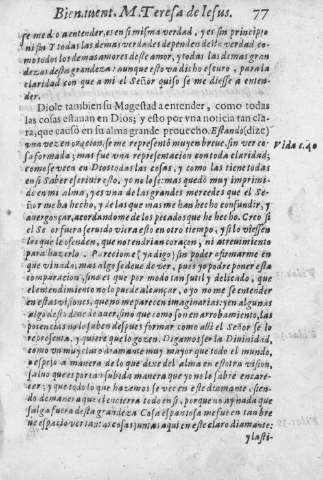 Bienauent. M. Teresa de Iesus. 77
se me dio a entender, es en si misma verdad, y es sin principio
ni fin y todas las demas verdades dependen desta verdad co
mo todos los demas amores deste amor, y todas las demas gran
dezas desta grandeza: aunque esto va dicho escuro, para la
claridad con que a mi el Señor quiso se me diesse a enten-
der.
Diole tambien su Magestad a entender, como todas
las cosas estauan en Dios; y esto por vna noticia tan cla
ra, que causó en su alma grande prouecho. Estando (dize)
vna vez en oracion, se me representò muy en breue, sin ver co
sa formada; mas fue vna representacion con toda claridad;
Vida c. 40
como se veen en Dios todas las cosas, y como las tiene todas
en si Saber escriuir esto, yo no lo se: mas quedó muy imprimi
do en mi alma, y es vna de las grandes mercedes que el Se-
ñor me ha hecho, y de las que mas me han hecho confundir, y
auergonçar, acordandome de los pecados que he hecho. Creo si
el Señor fuera seruido viera esto en otro tiempo, y si lo viessen
los que le ofenden, que no tendrian coraçon, ni atreuimiento
para hazerlo. Pareciome (ya digo) sin poder afirmarme en
que vi nada, mas algo se deue de ver, pues yo podre poner esta
comparacion, sino es que por modo tan sutil y delicado, que
el entendimiento no lo puede alcançar, o yo no me se entender
en estas visiones, que no me parecen imaginarias: y en algunas
algo desto deue de auer, sino que como son en arrobamiento, las
potencias no lo saben despues formar como alli el Señor se lo
representa, y quiere que lo gozen. Digamos ser la Diuinidad,
como vn muy claro diamante muy mayor que todo el mundo,
o espejo a manera de lo que dixe del alma en estotra vision,
saluo que es por tan subida manera que yo no lo sabrè encare-
cer; y que todo lo que hazemos se vee en este diamante, sien-
do de manera que el encierra todo en si, porque no ay nada que
salga fuera desta grandeza Cosa espantosa me fue en tan bre
ue espacio ver tantas cosas juntas aqui en este claro diamante:
y lasti-